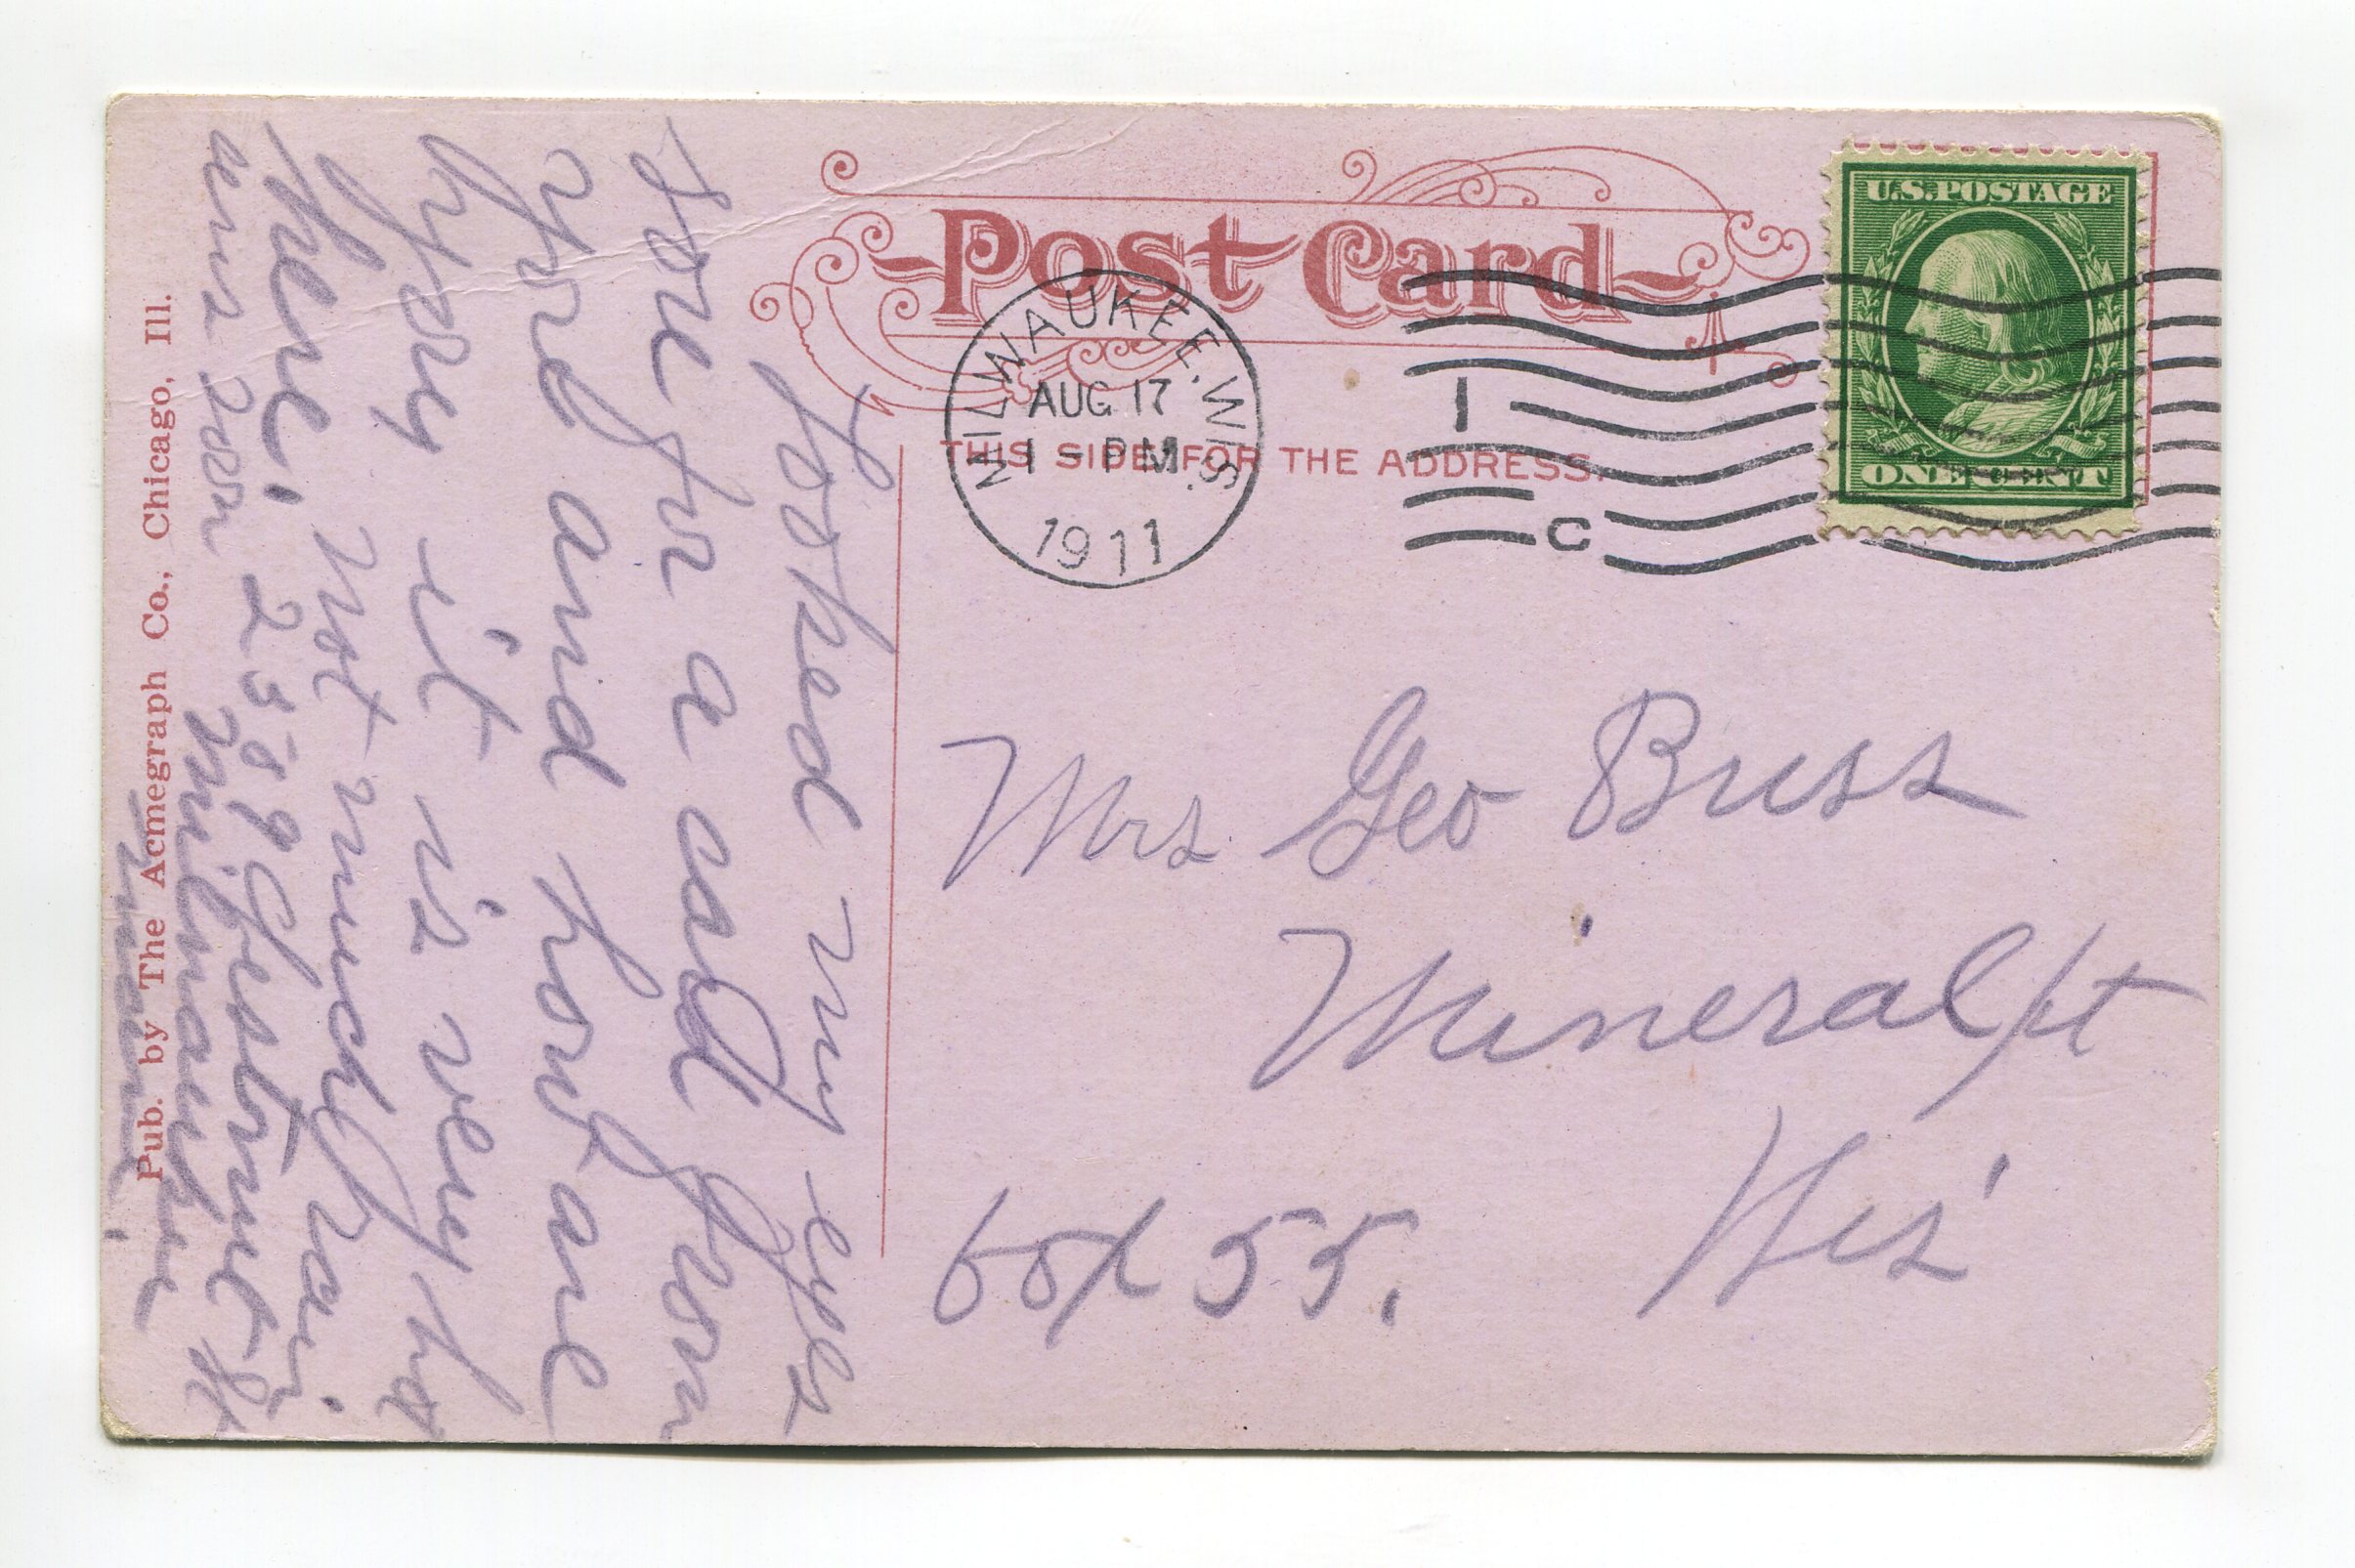 Post Card
THIS SIDE FOR THE ADDRESS.
U.S. POSTAGE
ONE CENT
MILWAUKEE, WIS.
AUG 17
1 - PM
1911
1
C
Mrs Geo Buss
Mineral Pt
Wis
box 55.
Looked my eyes
sore for a card from
you and how are
it is very hot
here, Not much rain
ans soon 2589
Milwaukee
Pub. by The Acmegraph Co., Chicago, Ill.